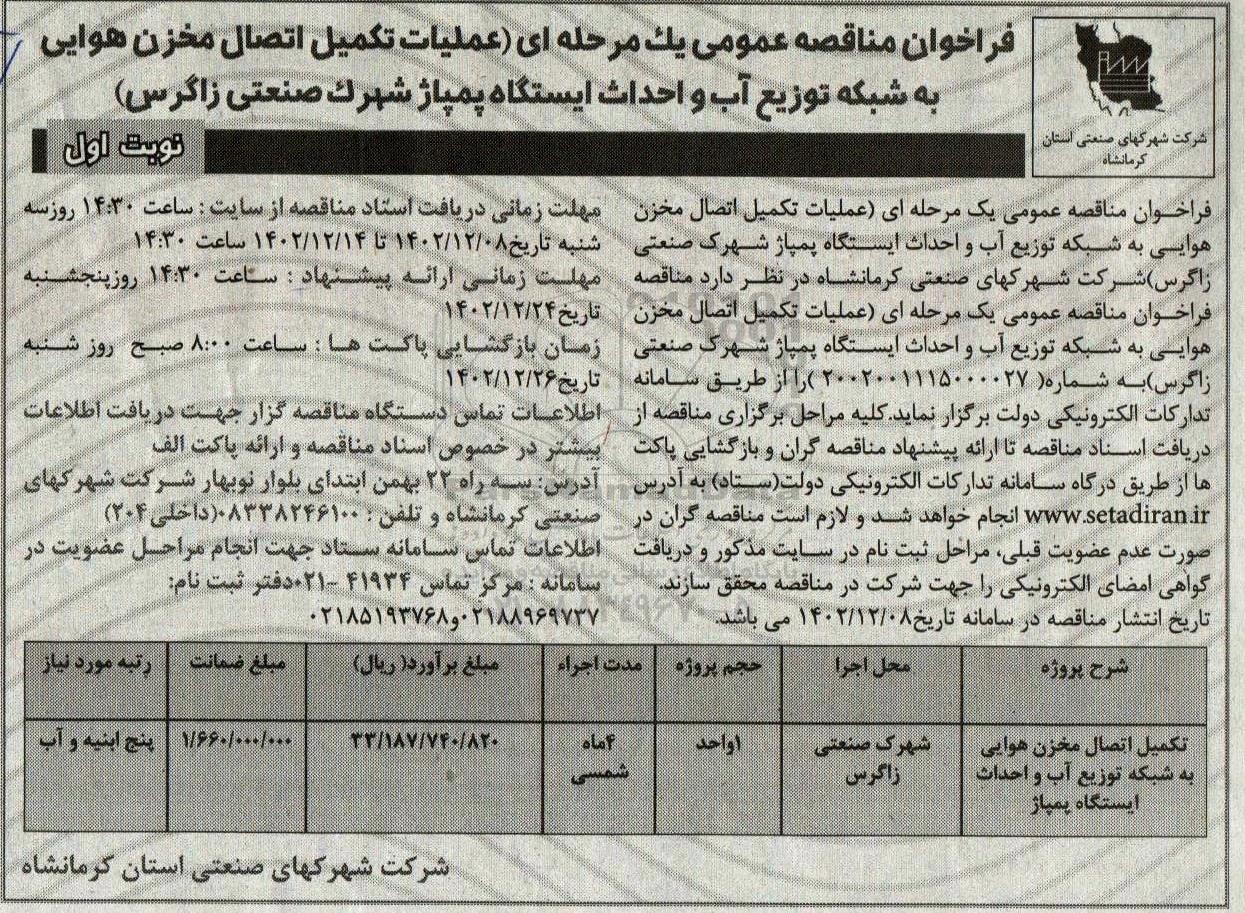 فراخوان مناقصه عمومی یک مرحله ای (عملیات تکمیل اتصال مخزن هوایی
به شبکه توزیع آب و احداث ایستگاه پمپاژ شهرک صنعتی زاگرس)
شرکت شهرکهای صنعتی استان
کرمانشاه
نوبت اول
فراخوان مناقصه عمومی یک مرحله ای (عملیات تکمیل اتصال مخزن
هوایی به شبکه توزیع آب و احداث ایستگاه پمپاژ شهرک صنعتی
زاگرس)شرکت شهرکهای صنعتی کرمانشاه در نظر دارد مناقصه
فراخوان مناقصه عمومی یک مرحله ای (عملیات تکمیل اتصال مخزن
هوایی به شبکه توزیع آب و احداث ایستگاه پمپاژ شهرک صنعتی
زاگرس)به شماره( ۲۰۰۲۰۰۱۱۱۵۰۰۰۰۲۷ )را از طریق سامانه
تدارکات الکترونیکی دولت برگزار نماید.کلیه مراحل برگزاری مناقصه از
دریافت اسناد مناقصه تا ارائه پیشنهاد مناقصه گران و بازگشایی پاکت
ها از طریق درگاه سامانه تدارکات الکترونیکی دولت(ستاد) به آدرس
www.setadiran.ir انجام خواهد شد و لازم است مناقصه گران در
صورت عدم عضویت قبلی، مراحل ثبت نام در سایت مذکور و دریافت
گواهی امضای الکترونیکی را جهت شرکت در مناقصه محقق سازند.
تاریخ انتشار مناقصه در سامانه تاریخ۱۴۰۲/۱۲/۰۸ می باشد.
مهلت زمانی دریافت اسناد مناقصه از سایت : ساعت ۱۴:۳۰ روزسه
شنبه تاریخ۱۴۰۲/۱۲/۰۸ تا ۱۴۰۲/۱۲/۱۴ ساعت ۱۴:۳۰
مهلت زمانی ارائه پیشنهاد : ساعت ۱۴:۳۰ روزپنجشنبه
تاریخ۱۴۰۲/۱۲/۲۴
زمان بازگشایی پاکت ها : ساعت ۸:۰۰ صبح روز شنبه
تاریخ۱۴۰۲/۱۲/۲۶
اطلاعات تماس دستگاه مناقصه گزار جهت دریافت اطلاعات
بیشتر در خصوص اسناد مناقصه و ارائه پاکت الف
آدرس: سه راه ۲۲ بهمن ابتدای بلوار نوبهار شرکت شهرکهای
صنعتی کرمانشاه و تلفن : ۰۸۳۳۸۲۴۶۱۰۰(داخلی۲۰۴)
اطلاعات تماس سامانه ستاد جهت انجام مراحل عضویت در
سامانه : مرکز تماس ۴۱۹۳۴ -۰۲۱دفتر ثبت نام:
۰۲۱۸۸۹۶۹۷۳۷و۰۲۱۸۵۱۹۳۷۶۸
شرح پروژه محل اجرا حجم پروژه مدت اجراء مبلغ برآورد( ریال) مبلغ ضمانت رتبه مورد نیاز
تکمیل اتصال مخزن هوایی شهرک صنعتی ۱واحد ۴ماه ۳۳/۱۸۷/۷۴۰/۸۲۰ ۱/۶۶۰/۰۰۰/۰۰۰ پنج ابنیه و آب
به شبکه توزیع آب و احداث زاگرس شمسی
ایستگاه پمپاژ
شرکت شهرکهای صنعتی استان کرمانشاه